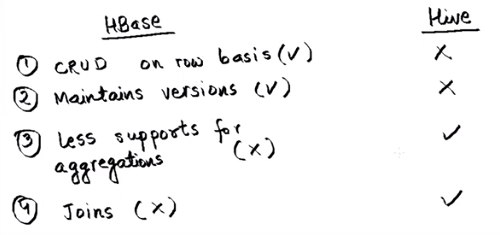 HBase Hive
① CRUD on row basis (✓) ✗
② Maintains versions (✓) ✗
③ Less supports for
aggregations (✗) ✓
④ Joins (✗) ✓